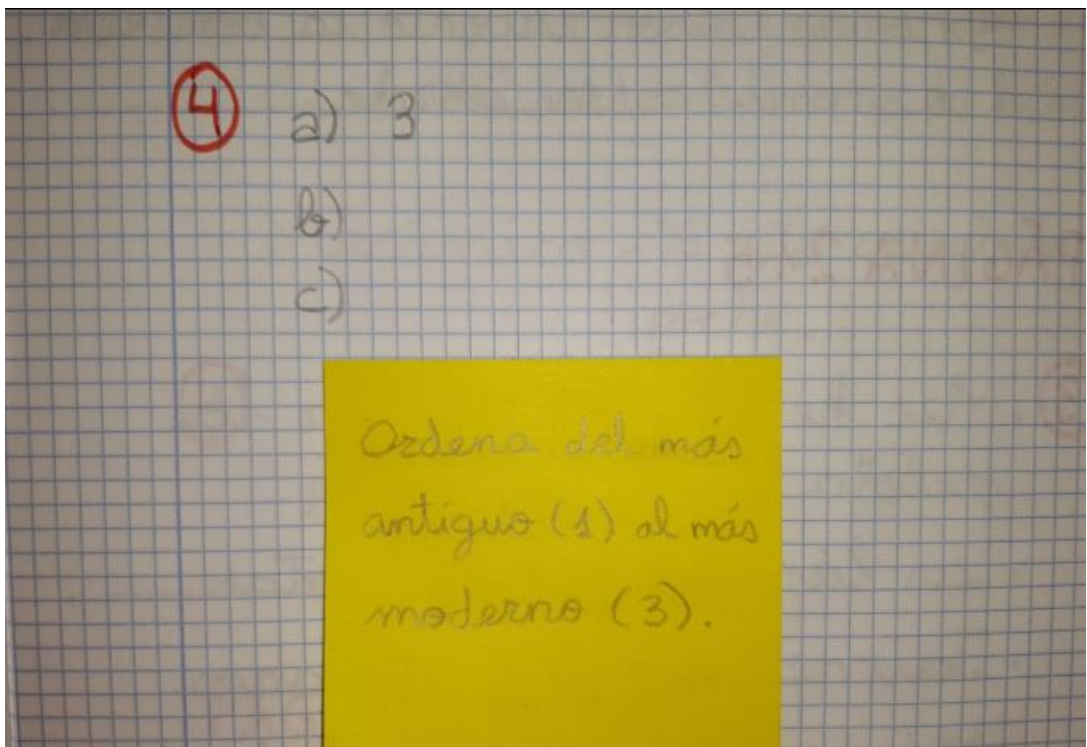 4 a) 3
b)
c)
Ordena del más
antiguo (1) al más
moderno (3).